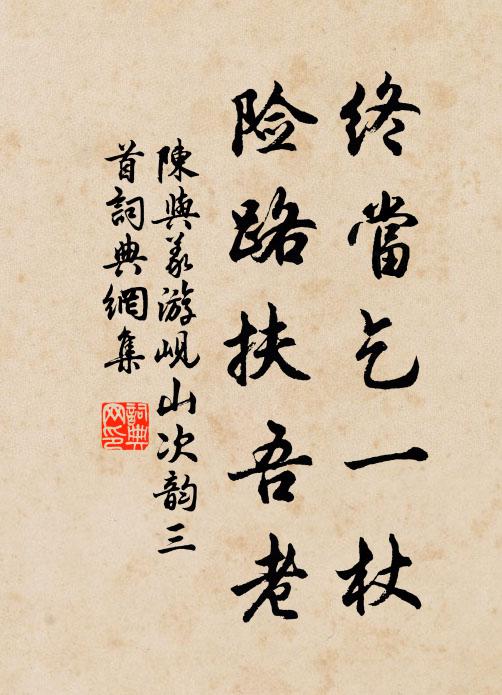 终當乞一杖
险路扶吾老
陳與义游峴山次韵三
首詞典網集
詞典网印